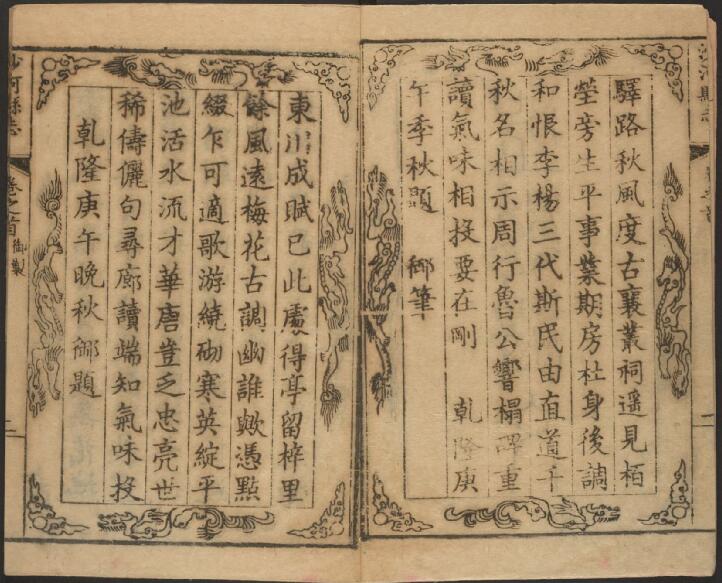 驛路秋風度古襄叢祠遥見栢
塋旁生平事業期房杜身後調
和恨李楊三代斯民由直道千
秋名相示周行魯公響榻碑重
讀氣味相投要在剛 乾隆庚
午季秋題 御筆
東川成賦已此處得亭留梓里
餘風遠梅花古調幽誰歟憑點
綴乍可適歌游繞砌寒英綻平
池活水流才華唐豈乏忠亮世
稀儔儷句尋廊讀端知氣味投
乾隆庚午晚秋御題
沙河縣志
卷之首 御製
二